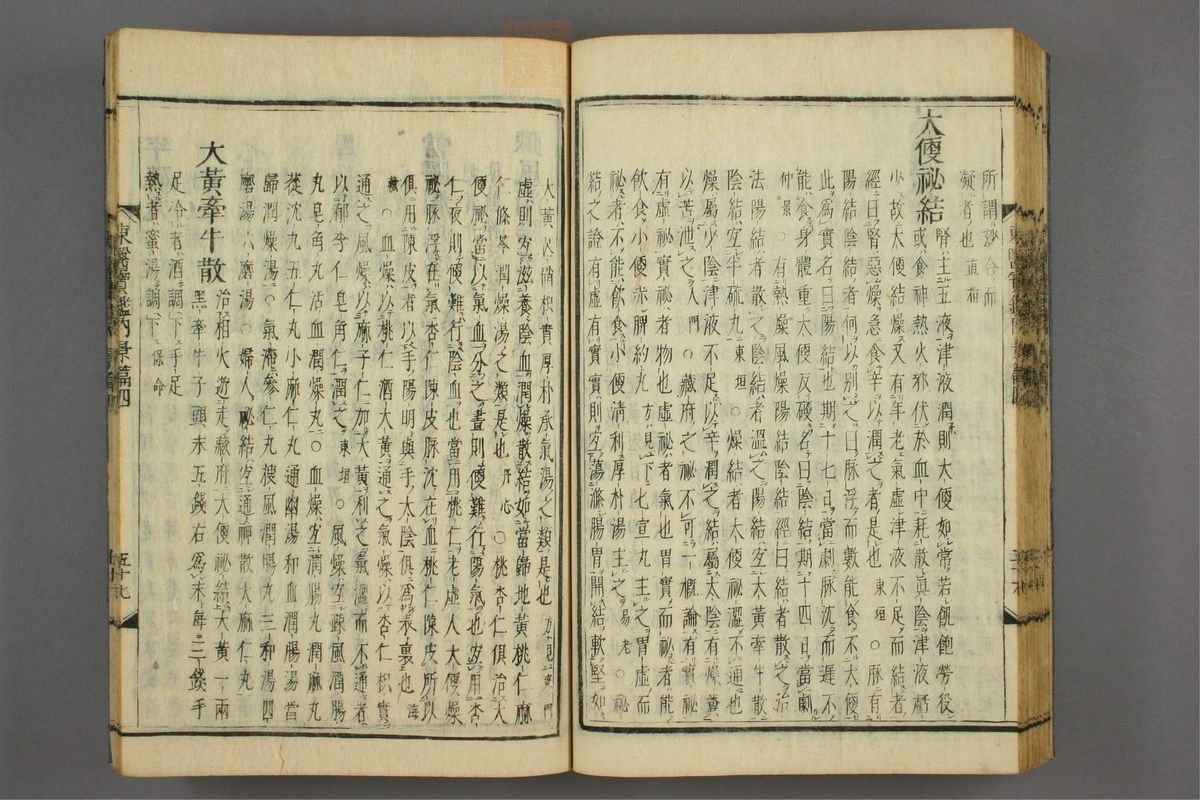 所謂妙合而
凝者也直指
大便祕結
腎主五液津液潤則大便如常若飢飽勞役
或食辛熱火邪伏於血中耗散眞陰津液虧
少故大便結燥又有年老氣虛津液不足而結者
經曰腎惡燥急食辛以潤之者是也東垣○脉有
陽結陰結者何以別之曰脉浮而數能食不大便
此爲實名曰陽結也期十七日當劇脉沈而遲不
能食身體重大便反硬名曰陰結期十四日當劇
仲景○有熱燥風燥陽結陰結經曰結者散之治
法陽結者散之陰結者溫之陽結宜大黃牽牛散
陰結宜半硫丸東垣○燥結者大便祕澁不通也
燥屬少陰津液不足以辛潤之結屬太陰有燥糞
以苦泄之入門○藏府之祕不可一槩論有實祕
有虛祕實祕者物也虛祕者氣也胃實而祕者能
飮食小便赤脾約丸方見下七宣丸主之胃虛而
祕者不能飮食小便淸利厚朴湯主之易老○祕
結之證有虛有實實則宜蕩滌腸胃開結軟堅如
大黃芒硝枳實厚朴承氣湯之類是也方見寒門
虛則宜滋養陰血潤燥散結如當歸地黃桃仁麻
仁條芩潤燥湯之類是也丹心○桃杏仁俱治大
便祕當以氣血分之晝則便難行陽氣也宜用杏
仁夜則便難行陰血也當用桃仁老虛人大便燥
祕脉浮在氣杏仁陳皮脉沈在血桃仁陳皮所以
俱用陳皮者以手陽明與手太陰俱爲表裏也海
藏○血燥以桃仁酒大黃通之氣燥以杏仁枳實
通之風燥以麻子仁加大黃利之氣澁而不通者
以郁李仁皂角仁潤之東垣○風燥宜疎風潤腸
丸皂角丸活血潤燥丸○血燥宜潤腸丸潤麻丸
從沈丸五仁丸小麻仁丸通幽湯和血潤腸湯當
歸潤燥湯○氣滯參仁丸搜風潤腸丸三和湯四
磨湯六磨湯○婦人祕結宜通神散大麻仁丸
大黃牽牛散
治相火遊走藏府大便祕結大黃一兩
黑牽牛子頭末五錢右爲末每三錢手
足冷者酒調下手足
熱者蜜湯調下保命
東醫寶鑑內景篇四
五十九